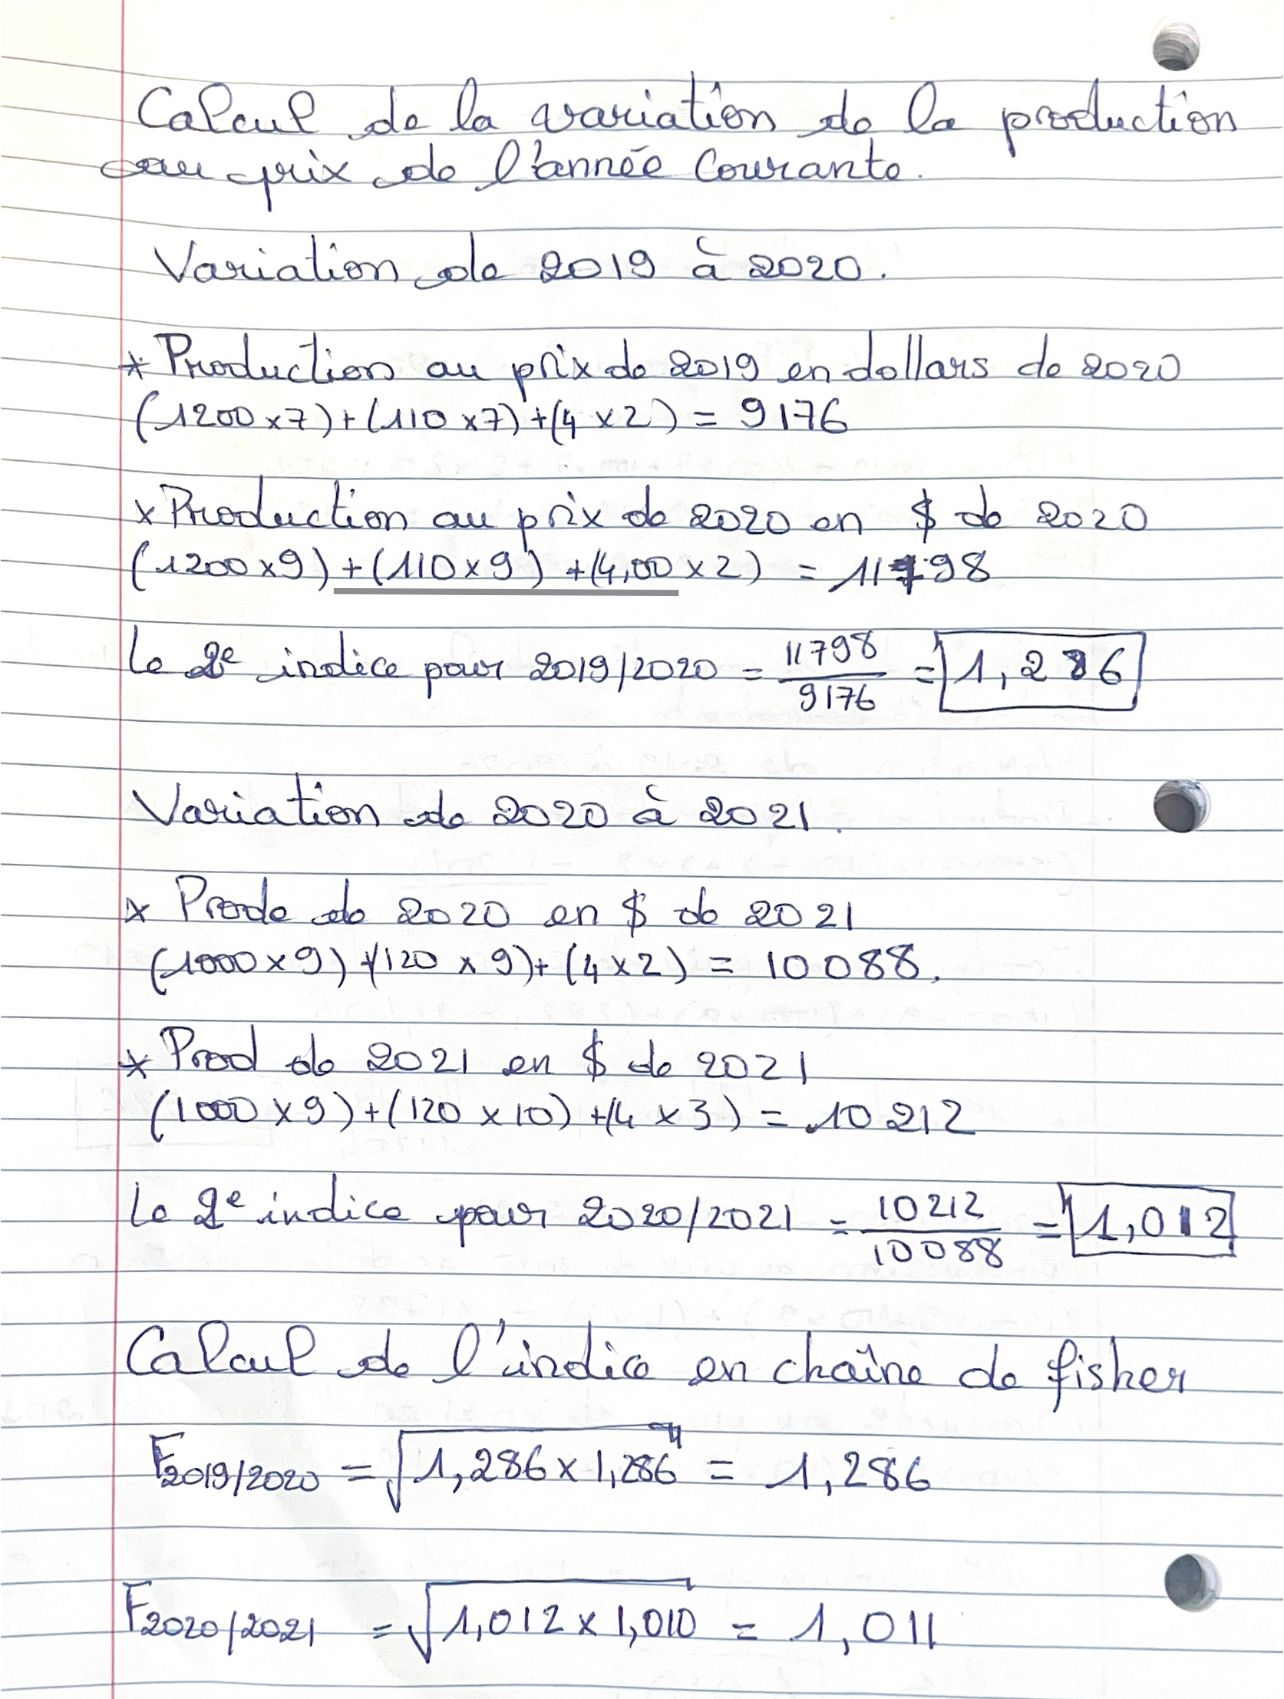 Calcul de la variation de la production
au prix de l'année Courante.
Variation de 2019 à 2020.
* Production au prix de 2019 en dollars de 2020
(1200 x 7) + (110 x 7) + (4 x 2) = 9176
x Production au prix de 2020 en $ de 2020
(1200 x 9) + (110 x 9) + (4,00 x 2) = 11798
Le 2e indice pour 2019/2020 = 11798/9176 = 1,286
Variation de 2020 à 2021.
x Prode de 2020 en $ de 2021
(1000 x 9) + (120 x 9) + (4 x 2) = 10088.
* Prod de 2021 en $ de 2021
(1000 x 9) + (120 x 10) + (4 x 3) = 10212
Le 2e indice pour 2020/2021 = 10212/10088 = 1,012
Calcul de l'indice en chaîne de fisher
F2019/2020 = √1,286 x 1,286 = 1,286
F2020/2021 = √1,012 x 1,010 = 1,011